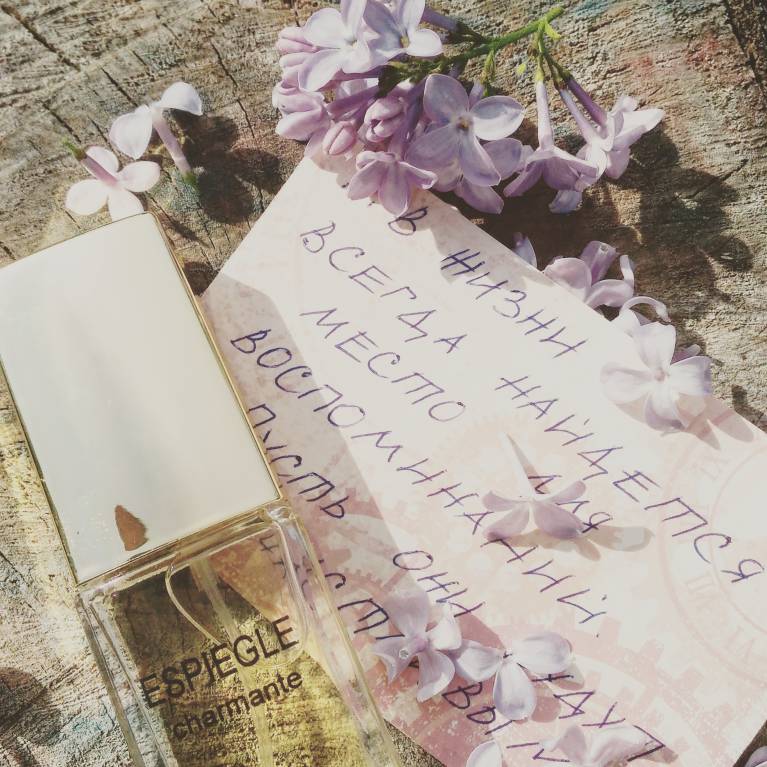 В ЖИЗНИ
ВСЕГДА НАЙДЕТСЯ
МЕСТО ДЛЯ
ВОСПОМИНАНИЙ.
ПУСТЬ ОНИ
ESPIEGLE
charmante